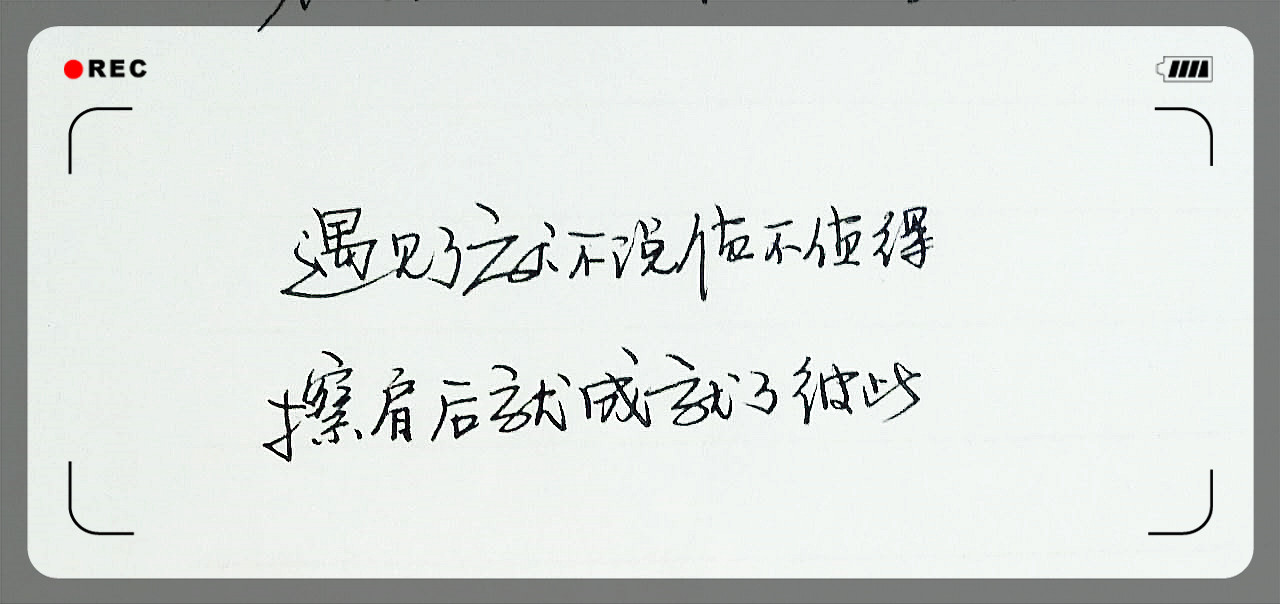 REC
遇见了就不说值不值得
擦肩后就成就了彼此